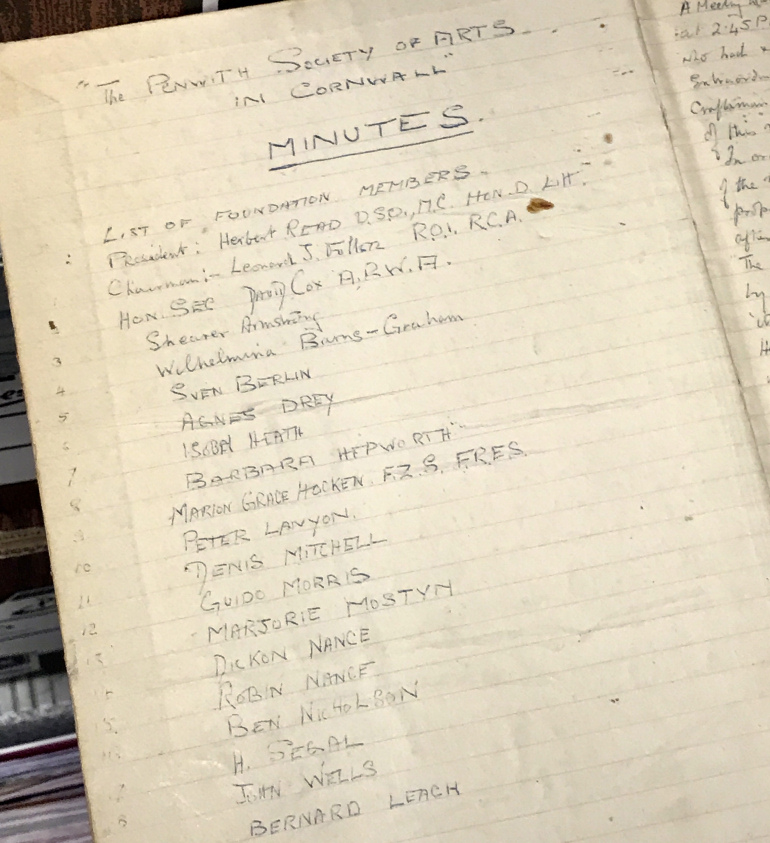 "The PENWITH SOCIETY OF ARTS
IN CORNWALL"
MINUTES.
LIST OF FOUNDATION MEMBERS.
President: Herbert READ D.S.O., M.C. HON. D. Lit.
Chairman:- Leonard J. Fuller R.O.I. R.C.A.
HON. SEC David Cox A.R.W.A.
Shearer Armstrong
3 Wilhelmina Barns-Graham
4 SVEN BERLIN
5 AGNES DREY
6 ISOBEL HEATH
7 BARBARA HEPWORTH
8 MARION GRACE HOCKEN F.Z.S. F.R.E.S.
9 PETER LANYON.
10 DENIS MITCHELL
11 GUIDO MORRIS
12 MARJORIE MOSTYN
13 DICKON NANCE
ROBIN NANCE
BEN NICHOLSON
H. SEGAL
JOHN WELLS
8 BERNARD LEACH
A Meeting
at 2.45 P
who had
Extraord
Craftsman
of this
In or
of the
prop
after
The
by